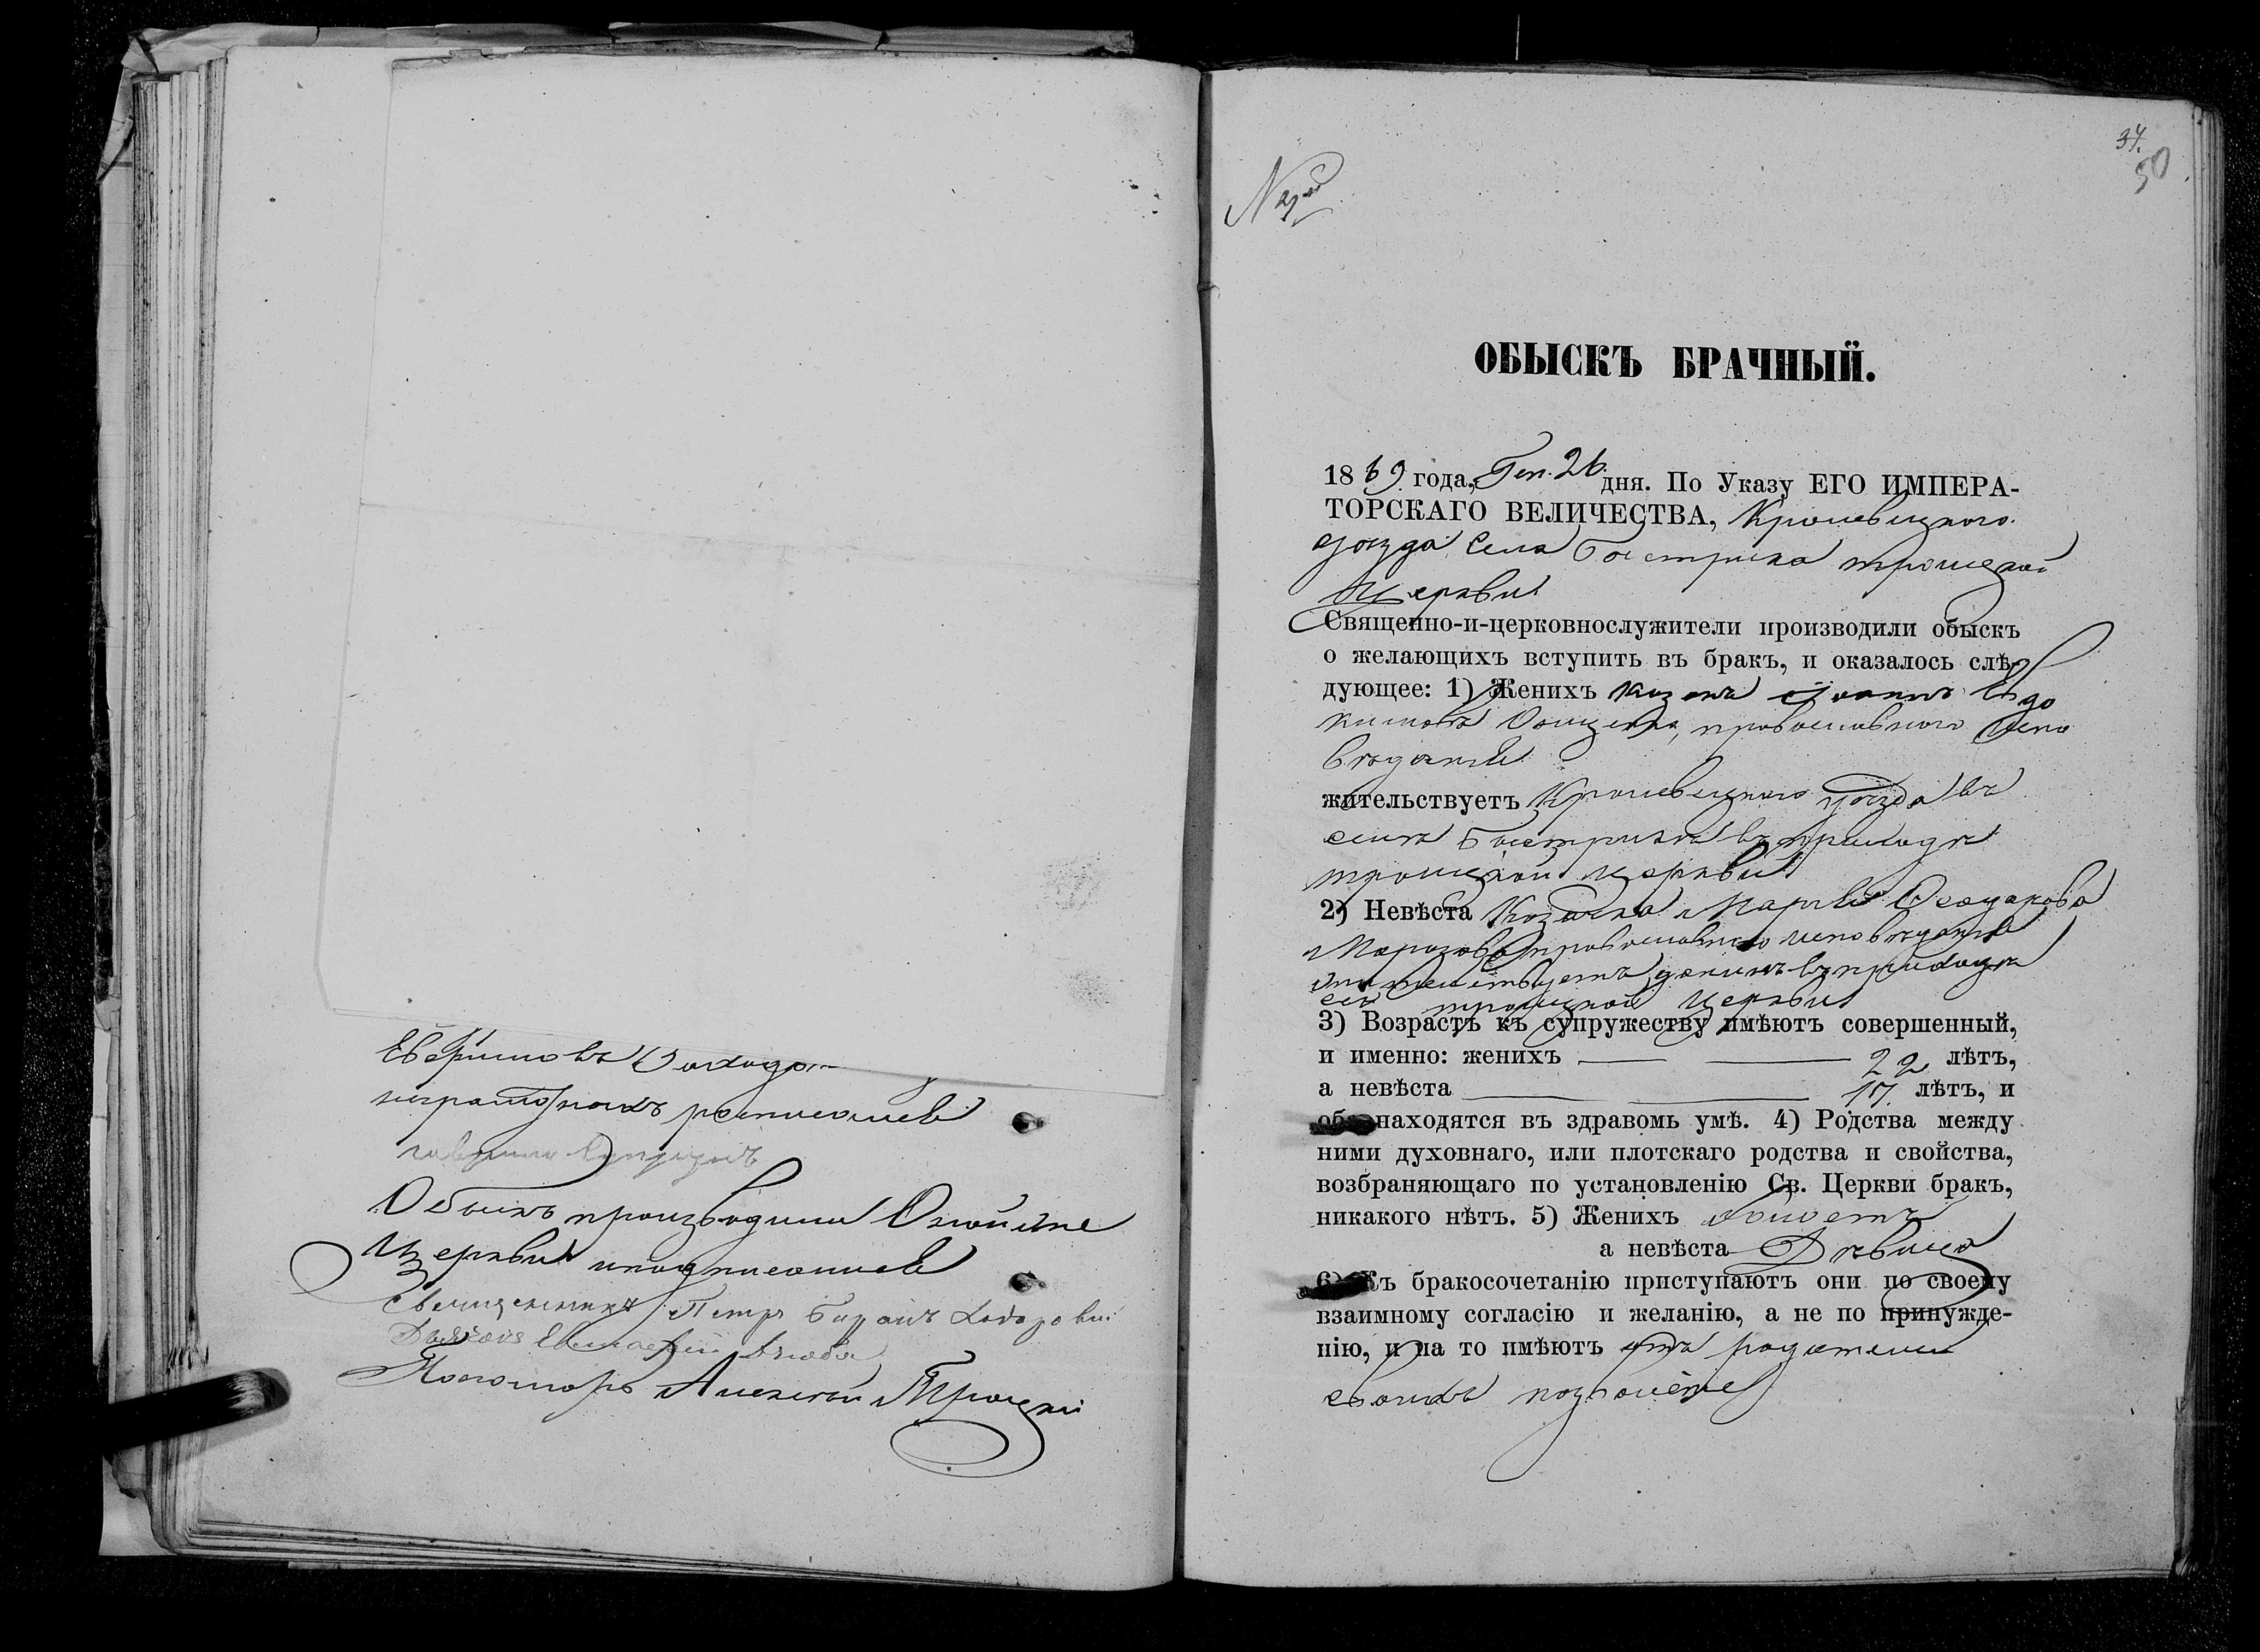 неграмотныхъ росписался
Обыскъ производили Оной же
Церкви и подписались
Священникъ Петръ
Діяконъ Евстафій
Пономарь Алексѣй Троцкій
34.
50
ОБЫСКЪ БРАЧНЫЙ.
1869 года, Ген. 26 дня. По Указу ЕГО ИМПЕРА-
ТОРСКАГО ВЕЛИЧЕСТВА, Кролевецкого
уѣзда Села Быстрика троицкой
Церкви
Священно-и-церковнослужители производили обыскъ
о желающихъ вступить въ бракъ, и оказалось слѣ-
дующее: 1) Женихъ козакъ Іоаннъ Евдо
кимовъ православного испо
вѣданія
жительствуетъ Кролевецкого уѣзда въ
селѣ Быстрикѣ въ приходѣ
троицкой церкви
2) Невѣста Козачка Марія
Морозова православного исповѣданія
жительствуетъ въ приходѣ
сей троицкой Церкви
3) Возрастъ къ супружеству имѣютъ совершенный,
и именно: женихъ 22 лѣтъ,
а невѣста 17 лѣтъ, и
оба находятся въ здравомъ умѣ. 4) Родства между
ними духовнаго, или плотскаго родства и свойства,
возбраняющаго по установленію Св. Церкви бракъ,
никакого нѣтъ. 5) Женихъ холостъ
а невѣста Дѣвица
6) Къ бракосочетанію приступаютъ они по своему
взаимному согласію и желанію, а не по принужде-
нію, и на то имѣютъ отъ родителей
своихъ позволеніе